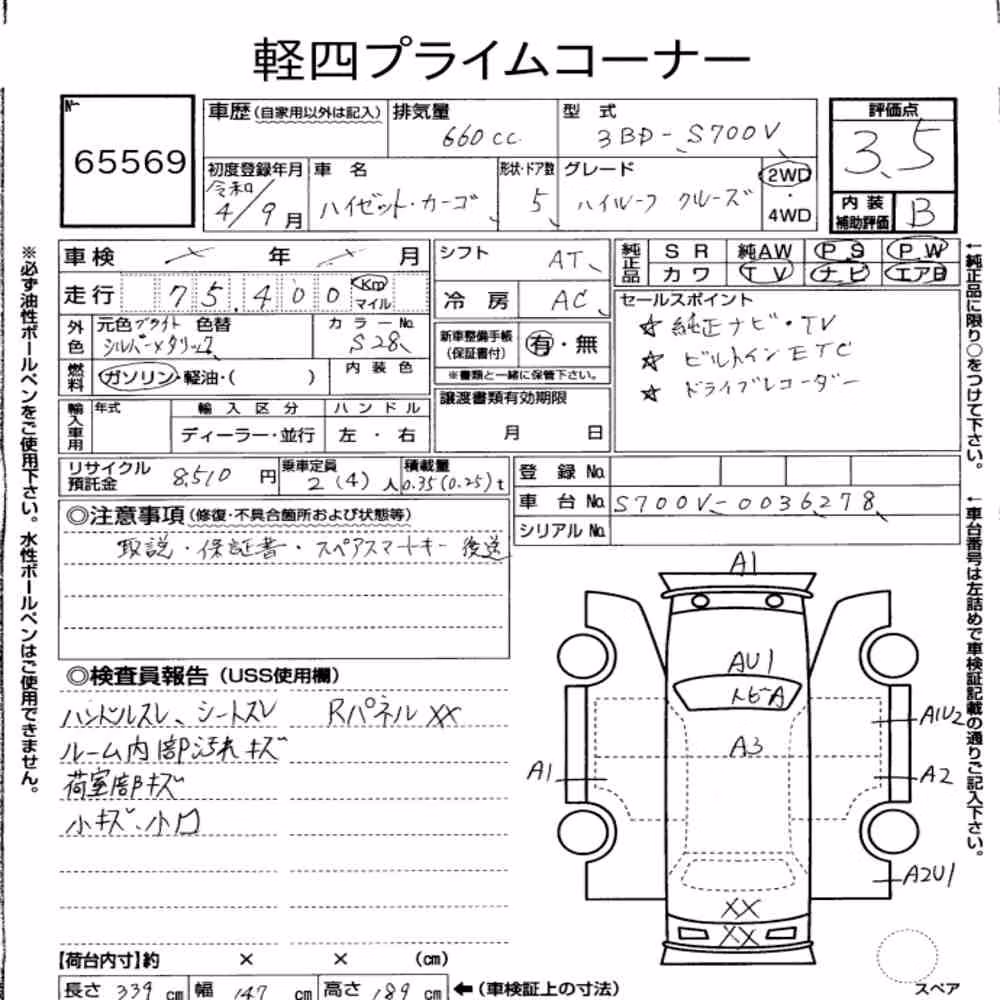 軽四プライムコーナー
No 65569
車歴(自家用以外は記入) 排気量 660cc 型式 3BD-S700V 評価点 3.5
初度登録年月 令和4/9月 車名 ハイゼット・カーゴ 形状・ドア数 5 グレード ハイルーフ クルーズ 2WD・4WD 内装補助評価 B
車検 年 月 シフト AT 純正品 SR 純AW PS PW
カワ TV ナビ エアB
走行 75,400 Km マイル 冷房 AC
セールスポイント
☆ 純正ナビ・TV
☆ ビルトインETC
☆ ドライブレコーダー
外色 元色 ブライトシルバーメタリック 色替 カラーNo. S28
新車整備手帳(保証書付) 有・無
※書類と一緒に保管下さい。
燃料 ガソリン・軽油・( ) 内装色
譲渡書類有効期限 月 日
輸入車用 年式 輸入区分 ハンドル
ディーラー・並行 左・右
リサイクル預託金 8,510円 乗車定員 2(4)人 積載量 0.35(0.25)t
登録No.
車台No. S700V-0036278
シリアルNo.
◎注意事項(修復・不具合箇所および状態等)
取説・保証書・スペアスマートキー 後送
◎検査員報告(USS使用欄)
ハンドルスレ、シートスレ Rパネル XX
ルーム内部汚れキズ
荷室部キズ
小キズ、小凹
A1
AU1
トビA
A3
A1U2
A1
A2
A2U1
XX
XX
【荷台内寸】約 × × (cm)
長さ 339 cm 幅 147 cm 高さ 189 cm ←(車検証上の寸法)
スペア
※必ず油性ボールペンをご使用下さい。水性ボールペンはご使用できません。
←純正品に限り○をつけて下さい。
←車台番号は左詰めで車検証記載の通りご記入下さい。